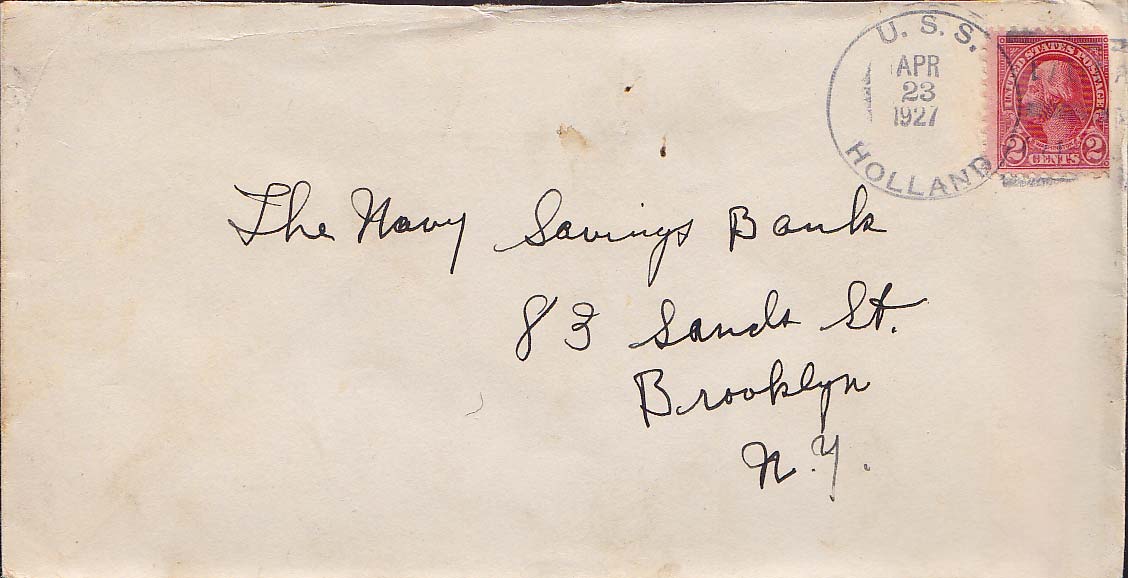 U. S. S.
APR
23
1927
HOLLAND
UNITED STATES POSTAGE
WASHINGTON
2 CENTS 2
The Navy Savings Bank
83 Sands St.
Brooklyn
N.Y.